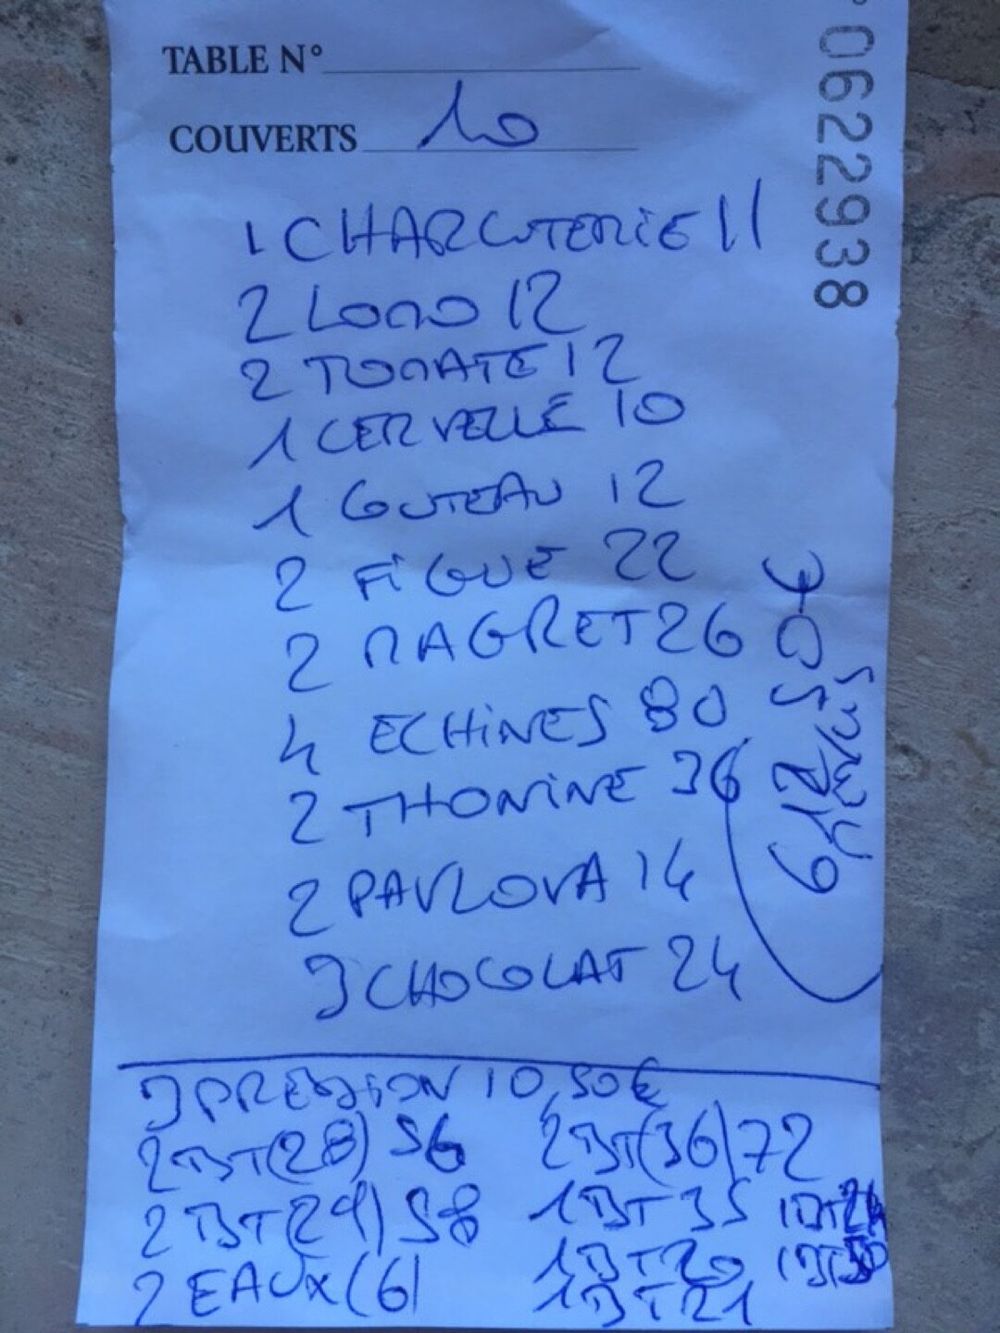 TABLE N°
COUVERTS 10
062 2938
1 CHARCUTERIE 11
2 LOMO 12
2 TOMATE 12
1 CERVELLE 10
1 COUTEAU 12
2 FIGUE 22
2 MAGRET 26
4 ECHINES 80
2 THONINE 36
2 PAVLOVA 14
3 CHOCOLAT 24
3 PRESSION 10,50€
2 BT(28) 56 2 BT(36) 72
2 BT(29) 58 1 BT 35 1 BT 24
2 EAUX (6) 1 BT 20 1 BT 50
1 BT 21